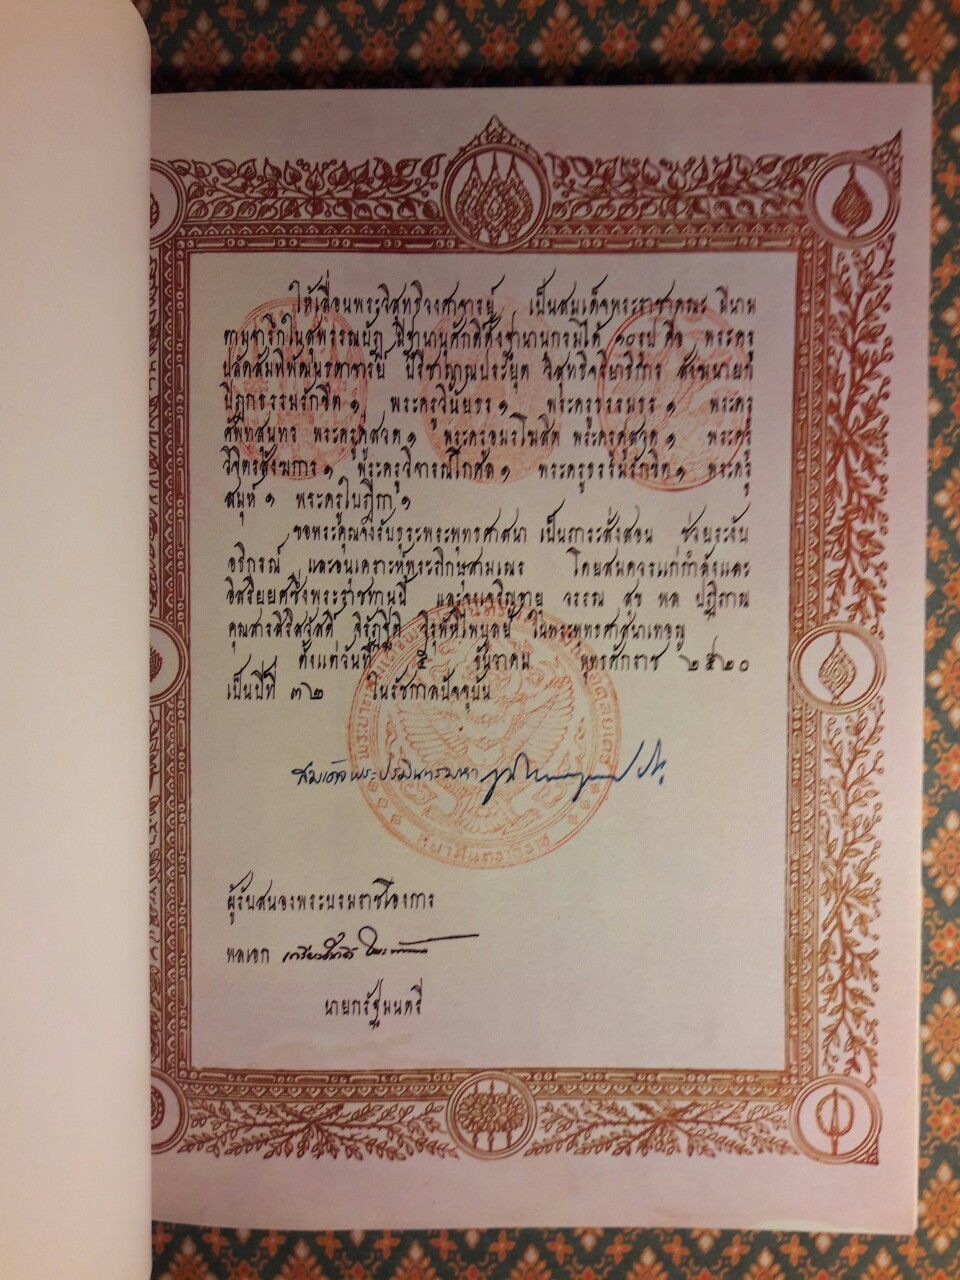 ให้เลื่อนพระวิสุทธิวงศาจารย์ เป็นสมเด็จพระราชาคณะ มีนาม
ตามจารึกในสุพรรณบัฏ มีฐานานุศักดิ์ตั้งฐานานุกรมได้ ๑๐ รูป คือ พระครู
ปลัดสัมพิพัฒน ปรีชาญาณประยุต วิสุทธิจริยาธิการ สังฆนายก
ปิฎกธรรมรักขิต ๑ พระครูวินัยธร ๑ พระครูธรรมธร ๑ พระครู
ศัพทสุนทร พระครูคู่สวด ๑ พระครูอมรโฆสิต พระครูคู่สวด ๑ พระครู
วิจิตรสังฆการ ๑ พระครูวิจารณ์โกศล ๑ พระครูธรรมรักขิต ๑ พระครู
สมุห์ ๑ พระครูใบฎีกา ๑
ขอพระคุณจงรับธุระพระพุทธศาสนา เป็นภาระสั่งสอน ช่วยระงับ
อธิกรณ์ และอนุเคราะห์พระภิกษุสามเณร โดยสมควรแก่กำลังและ
อิสริยยศซึ่งพระราชทานนี้ และจงเจริญอายุ วรรณ สุข พล ปฏิภาณ
คุณสารสิริสวัสดิ์ จิรัฏฐิติ วิรุฬห์ไพบูลย์ ในพระพุทธศาสนาเทอญ
ตั้งแต่วันที่ ๕ ธันวาคม พุทธศักราช ๒๕๒๐
เป็นปีที่ ๓๒ ในรัชกาลปัจจุบัน
สมเด็จพระปรมินทรมหา
ผู้รับสนองพระบรมราชโองการ
พลเอก เกรียงศักดิ์
นายกรัฐมนตรี